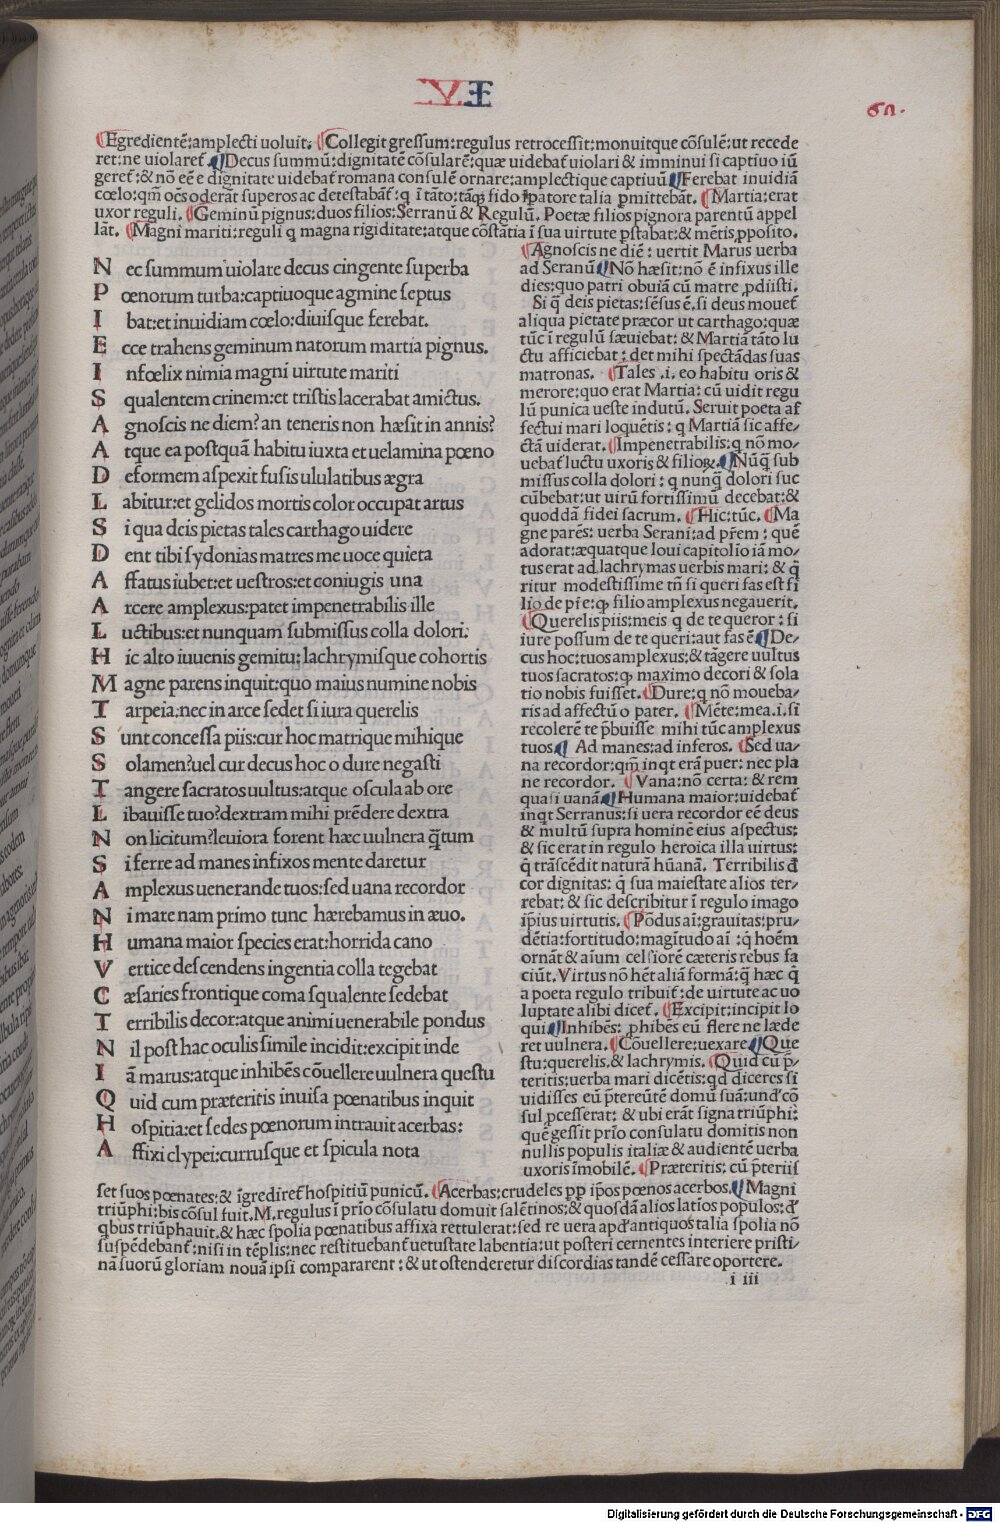 VI
60.
Egredientē:amplecti uoluit. Collegit gressum:regulus retrocessit:monuitque cōsulē:ut recede
ret:ne uiolaret̄ Decus summū:dignitatē cōsularē:quæ uidebat̄ uiolari & imminui si captiuo iū
geret̄:& nō eē e dignitate uidebat̄ romana consulē ornare:amplectique captiuū Ferebat inuidiā
cœlo:qm̄ oēs oderāt superos ac detestabāt̄:q ī tāto:tāq̨ fido īpatore talia p̲mittebāt. Martia:erat
uxor reguli. Geminū pignus:duos filios:Serranū & Regulū. Poetæ filios pignora parentū appel
lāt. Magni mariti:reguli q magna rigiditate:atque cōstātia ī sua uirtute p̄stabat:& mētis p̲posito.
N ec summum uiolare decus cingente superba
P œnorum turba:captiuoque agmine septus
I bat:et inuidiam cœlo:diuisque ferebat.
E cce trahens geminum natorum martia pignus.
I nfœlix nimia magni uirtute mariti
S qualentem crinem:et tristis lacerabat amictus.
A gnoscis ne diem? an teneris non hæsit in annis?
A tque ea postquā habitu iuxta et uelamina pœno
D eformem aspexit fusis ululatibus ægra
L abitur:et gelidos mortis color occupat artus
S i qua deis pietas tales carthago uidere
D ent tibi sydonias matres me uoce quieta
A ffatus iubet:et uestros:et coniugis una
A rcere amplexus:patet impenetrabilis ille
L uctibus:et nunquam submissus colla dolori:
H ic alto iuuenis gemitu:lachrymisque cohortis
M agne parens inquit:quo maius numine nobis
T arpeia:nec in arce sedet si iura querelis
S unt concessa piis:cur hoc matrique mihique
S olamen?uel cur decus hoc o dure negasti
T angere sacratos uultus:atque oscula ab ore
L ibauisse tuo?dextram mihi prēdere dextra
N on licitum?leuiora forent hæc uulnera q̄tum
S i ferre ad manes infixos mente daretur
A mplexus uenerande tuos:sed uana recordor
N i mare nam primo tunc hærebamus in æuo.
H umana maior species erat:horrida cano
V ertice descendens ingentia colla tegebat
C æsaries frontique coma squalente sedebat
T erribilis decor:atque animi uenerabile pondus
N il post hac oculis simile incidit:excipit inde
I ā marus:atque inhibēs cōuellere uulnera questu
Q uid cum præteritis inuisa pœnatibus inquit
H ospitia:et sedes pœnorum intrauit acerbas:
A ffixi clypei:currusque et spicula nota
Agnoscis ne diē: uertit Marus uerba
ad Seranū Nō hæsit:nō ē infixus ille
dies:quo patri obuiā cū matre p̲diisti.
Si q̄ deis pietas:sēsus ē.si deus mouet̄
aliqua pietate præcor ut carthago:quæ
tūc ī regulū sæuiebat: & Martiā tāto lu
ctu afficiebat: det mihi spectādas suas
matronas. Tales .i. eo habitu oris &
merore:quo erat Martia: cū uidit regu
lū punica ueste indutū. Seruit poeta af
fectui mari loquētis: q Martiā sic affe/
ctā uiderat. Impenetrabilis:q nō mo/
uebat̄ luctu uxoris & filioꝝ. Nūq̄ sub
missus colla dolori: q nunq̄ dolori suc
cūbebat:ut uirū fortissimū decebat:&
quoddā fidei sacrum. Hic:tūc. Ma
gne parēs: uerba Serani:ad pr̄em: quē
adorat:æquatque Ioui capitolio iā mo/
tus erat ad lachrymas uerbis mari: & q̄
ritur modestissime tn̄ si queri fas est fi
lio de pr̄e:qꝫ filio amplexus negauerit.
Querelis piis:meis q de te queror: si
iure possum de te queri:aut fas ē De/
cus hoc:tuos amplexus:& tāgere uultus
tuos sacratos:qꝫ maximo decori & sola
tio nobis fuisset. Dure:q nō moueba/
ris ad affectū o pater. Mēte:mea.i.si
recolerē te p̄buisse mihi tūc amplexus
tuos Ad manes:ad inferos. Sed ua/
na recordor:qm̄ inqt erā puer: nec pla
ne recordor. Vana:nō certa: & rem
quasi uanā Humana maior:uidebat̄
inqt Serranus:si uera recordor eē deus
& multū supra hominē eius aspectus:
& sic erat in regulo heroica illa uirtus:
q̄ trāscēdit naturā hūanā. Terribilis d
cor dignitas: q̄ sua maiestate alios ter/
rebat: & sic describitur ī regulo imago
īpius uirtutis. Pōdus aī:grauitas:pru/
dētia:fortitudo:magītudo aī :q̄ hoēm
ornāt & aīum celsiorē cæteris rebus fa
ciūt.Virtus nō hēt aliā formā:q̄ hæc q̄
a poeta regulo tribuit̄:de uirtute ac uo
luptate alibi dicet̄. Excipit:incipit lo
qui Inhibēs: p̲hibēs eū flere ne læde
ret uulnera. Cōuellere:uexare Que
stu:querelis.& lachrymis. Quid cū p̄
teritis:uerba mari dicētis:qd diceres si
uidisses eū p̄tereūtē domū suā:und' cō
sul p̲cesserat: & ubi erāt signa triūphi:
quē gessit prīo consulatu domitis non
nullis populis italiæ & audientē uerba
uxoris īmobilē. Præteritis: cū p̄teriis
set suos pœnates:& īgrediret̄ hospitiū punicū. Acerbas:crudeles p̲p īpos pœnos acerbos. Magni
triūphi:bis cōsul fuit.M.regulus ī prīo cōsulatu domuit salētinos:& quosdā alios latios populos:d'
qbus triūphauit.& hæc spolia pœnatibus affixa rettulerat:sed re uera apd' antiquos talia spolia nō
suspēdebant̄:nisi in tēplis:nec restituebant̄ uetustate labentia:ut posteri cernentes interiere pristi/
nā suorū gloriam nouā ipsi compararent: & ut ostenderetur discordias tandē cessare oportere.
i iii
Digitalisierung gefördert durch die Deutsche Forschungsgemeinschaft - DFG